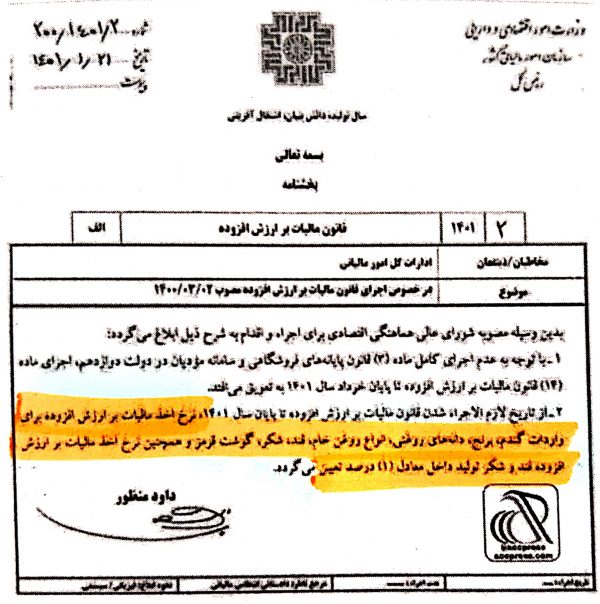 وزارت امور اقتصادی و دارایی
سازمان امور مالیاتی کشور
رئیس کل
شماره ۲۰۰/۱۴۰۱/۲
تاریخ ۱۴۰۱/۰۱/۲۱
پیوست
سال تولید، دانش بنیان، اشتغال آفرینی
بسمه تعالی
بخشنامه
۲ ۱۴۰۱ قانون مالیات بر ارزش افزوده الف
مخاطبان/ذینفعان ادارات کل امور مالیاتی
موضوع در خصوص اجرای قانون مالیات بر ارزش افزوده مصوب ۱۴۰۰/۰۳/۰۲
بدین وسیله مصوبه شورای عالی هماهنگی اقتصادی برای اجراء و اقدام به شرح ذیل ابلاغ می‌گردد:
۱- با توجه به عدم اجرای کامل ماده (۳) قانون پایانه‌های فروشگاهی و سامانه مؤدیان در دولت دوازدهم، اجرای ماده
(۱۴) قانون مالیات بر ارزش افزوده تا پایان خرداد سال ۱۴۰۱ به تعویق می‌افتد.
۲- از تاریخ لازم الاجراء شدن قانون مالیات بر ارزش افزوده تا پایان سال ۱۴۰۱، نرخ اخذ مالیات بر ارزش افزوده برای
واردات گندم، برنج، دانه‌های روغنی، انواع روغن خام، قند، شکر، گوشت قرمز و همچنین نرخ اخذ مالیات بر ارزش
افزوده قند و شکر تولید داخل معادل (۱) درصد تعیین می‌گردد.
داود منظور
تاریخ اجراء: مدت اجراء: مرجع ناظر: دادستانی انتظامی مالیاتی نحوه ابلاغ: فیزیکی/سیستمی